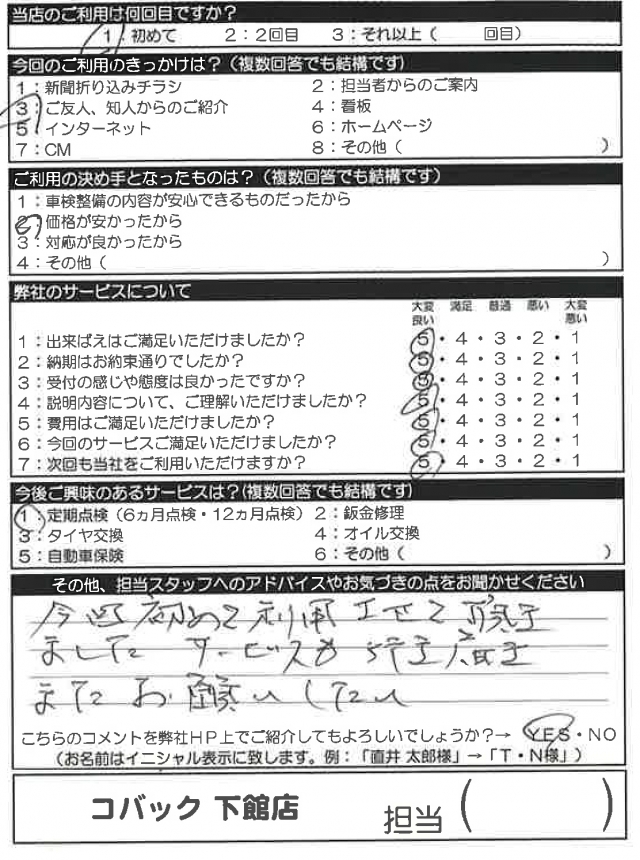 当店のご利用は何回目ですか？
1：初めて　2：2回目　3：それ以上（　回目）
今回のご利用のきっかけは？（複数回答でも結構です）
1：新聞折り込みチラシ　2：担当者からのご案内
3：ご友人、知人からのご紹介　4：看板
5：インターネット　6：ホームページ
7：CM　8：その他（　）
ご利用の決め手となったものは？（複数回答でも結構です）
1：車検整備の内容が安心できるものだったから
2：価格が安かったから
3：対応が良かったから
4：その他（　）
弊社のサービスについて
大変良い　満足　普通　悪い　大変悪い
1：出来ばえはご満足いただけましたか？　5・4・3・2・1
2：納期はお約束通りでしたか？　5・4・3・2・1
3：受付の感じや態度は良かったですか？　5・4・3・2・1
4：説明内容について、ご理解いただけましたか？　5・4・3・2・1
5：費用はご満足いただけましたか？　5・4・3・2・1
6：今回のサービスご満足いただけましたか？　5・4・3・2・1
7：次回も当社をご利用いただけますか？　5・4・3・2・1
今後ご興味のあるサービスは？(複数回答でも結構です)
1：定期点検（6ヵ月点検・12ヵ月点検）　2：鈑金修理
3：タイヤ交換　4：オイル交換
5：自動車保険　6：その他（　）
その他、担当スタッフへのアドバイスやお気づきの点をお聞かせください
今回初めて利用させて頂き
ました サービスも行き届き
またお願いしたい
こちらのコメントを弊社HP上でご紹介してもよろしいでしょうか？→ YES・NO
（お名前はイニシャル表示に致します。例：「直井 太郎様」→「T・N様」）
コバック 下館店　担当（　）